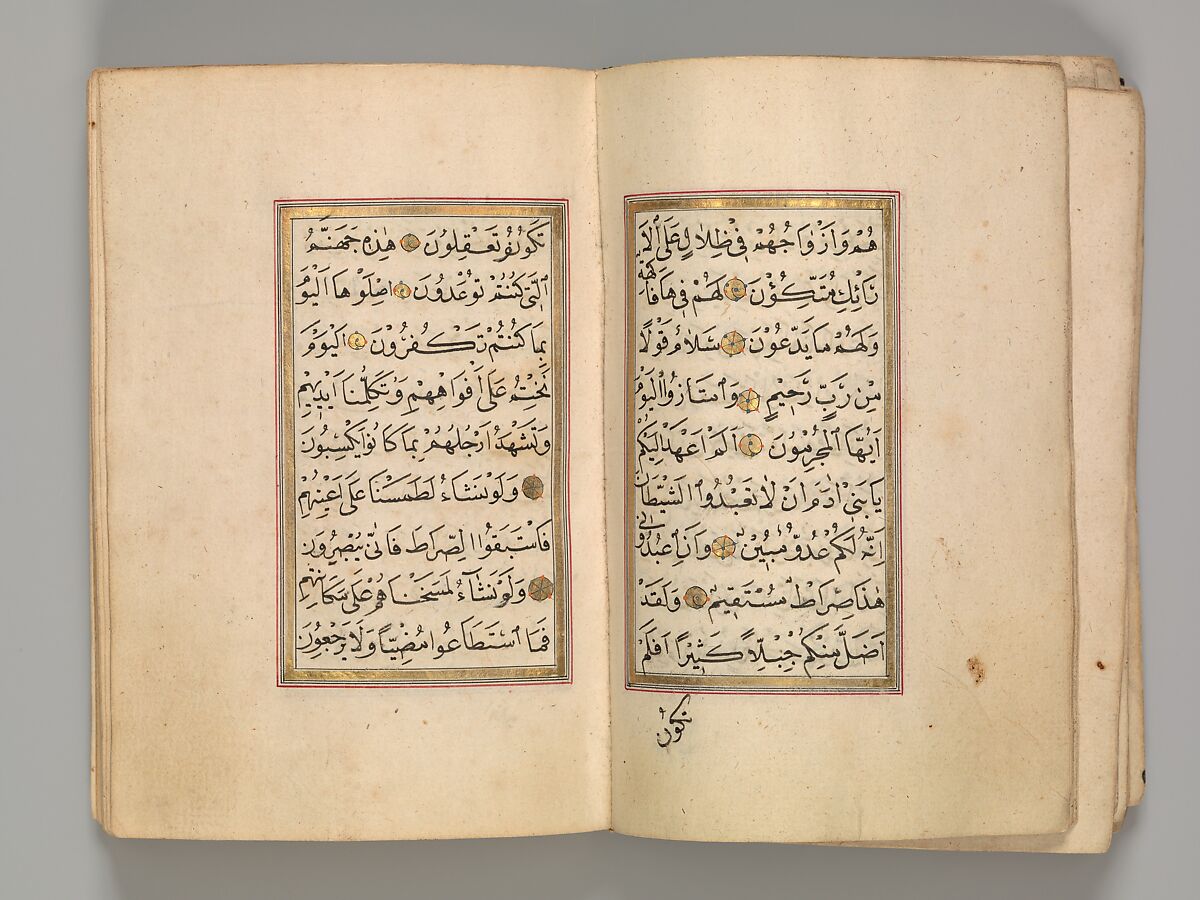 هُمْ وَاَزْوَاجُهُمْ فِي ظِلَالٍ عَلَى الْاَ
رَائِكِ مُتَّكِؤُنَ لَهُمْ فِيهَا فَاكِهَةٌ
وَلَهُمْ مَا يَدَّعُونَ سَلَامٌ قَوْلًا
مِنْ رَبٍّ رَحِيمٍ وَامْتَازُوا الْيَوْمَ
اَيُّهَا الْمُجْرِمُونَ اَلَمْ اَعْهَدْ اِلَيْكُمْ
يَا بَنِي اٰدَمَ اَنْ لَا تَعْبُدُوا الشَّيْطَانَ
اِنَّهُ لَكُمْ عَدُوٌّ مُبِينٌ وَاَنِ اعْبُدُونِي
هٰذَا صِرَاطٌ مُسْتَقِيمٌ وَلَقَدْ
اَضَلَّ مِنْكُمْ جِبِلًّا كَثِيرًا اَفَلَمْ
تكون
تَكُونُوا تَعْقِلُونَ هٰذِهِ جَهَنَّمُ
الَّتِي كُنْتُمْ تُوعَدُونَ اِصْلَوْهَا الْيَوْمَ
بِمَا كُنْتُمْ تَكْفُرُونَ اَلْيَوْمَ
نَخْتِمُ عَلَى اَفْوَاهِهِمْ وَتُكَلِّمُنَا اَيْدِيهِمْ
وَتَشْهَدُ اَرْجُلُهُمْ بِمَا كَانُوا يَكْسِبُونَ
وَلَوْ نَشَاءُ لَطَمَسْنَا عَلَى اَعْيُنِهِمْ
فَاسْتَبَقُوا الصِّرَاطَ فَاَنّٰى يُبْصِرُونَ
وَلَوْ نَشَاءُ لَمَسَخْنَاهُمْ عَلَى مَكَانَتِهِمْ
فَمَا اسْتَطَاعُوا مُضِيًّا وَلَا يَرْجِعُونَ